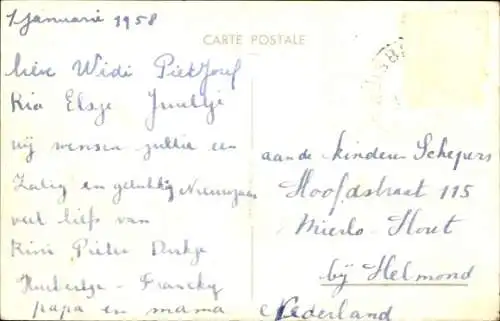 1 Januarie 1958
CARTE POSTALE
Lieve Widi Piet Josef
Ria Elsje
wij wensen jullie een
Zalig en gelukkig Nieuwjaar
veel liefs van
Rini Pieter
Hubertje - Francky
papa en mama
aan de kinderen Schepers
Hoofdstraat 115
Mierlo-Hout
bij Helmond
Nederland